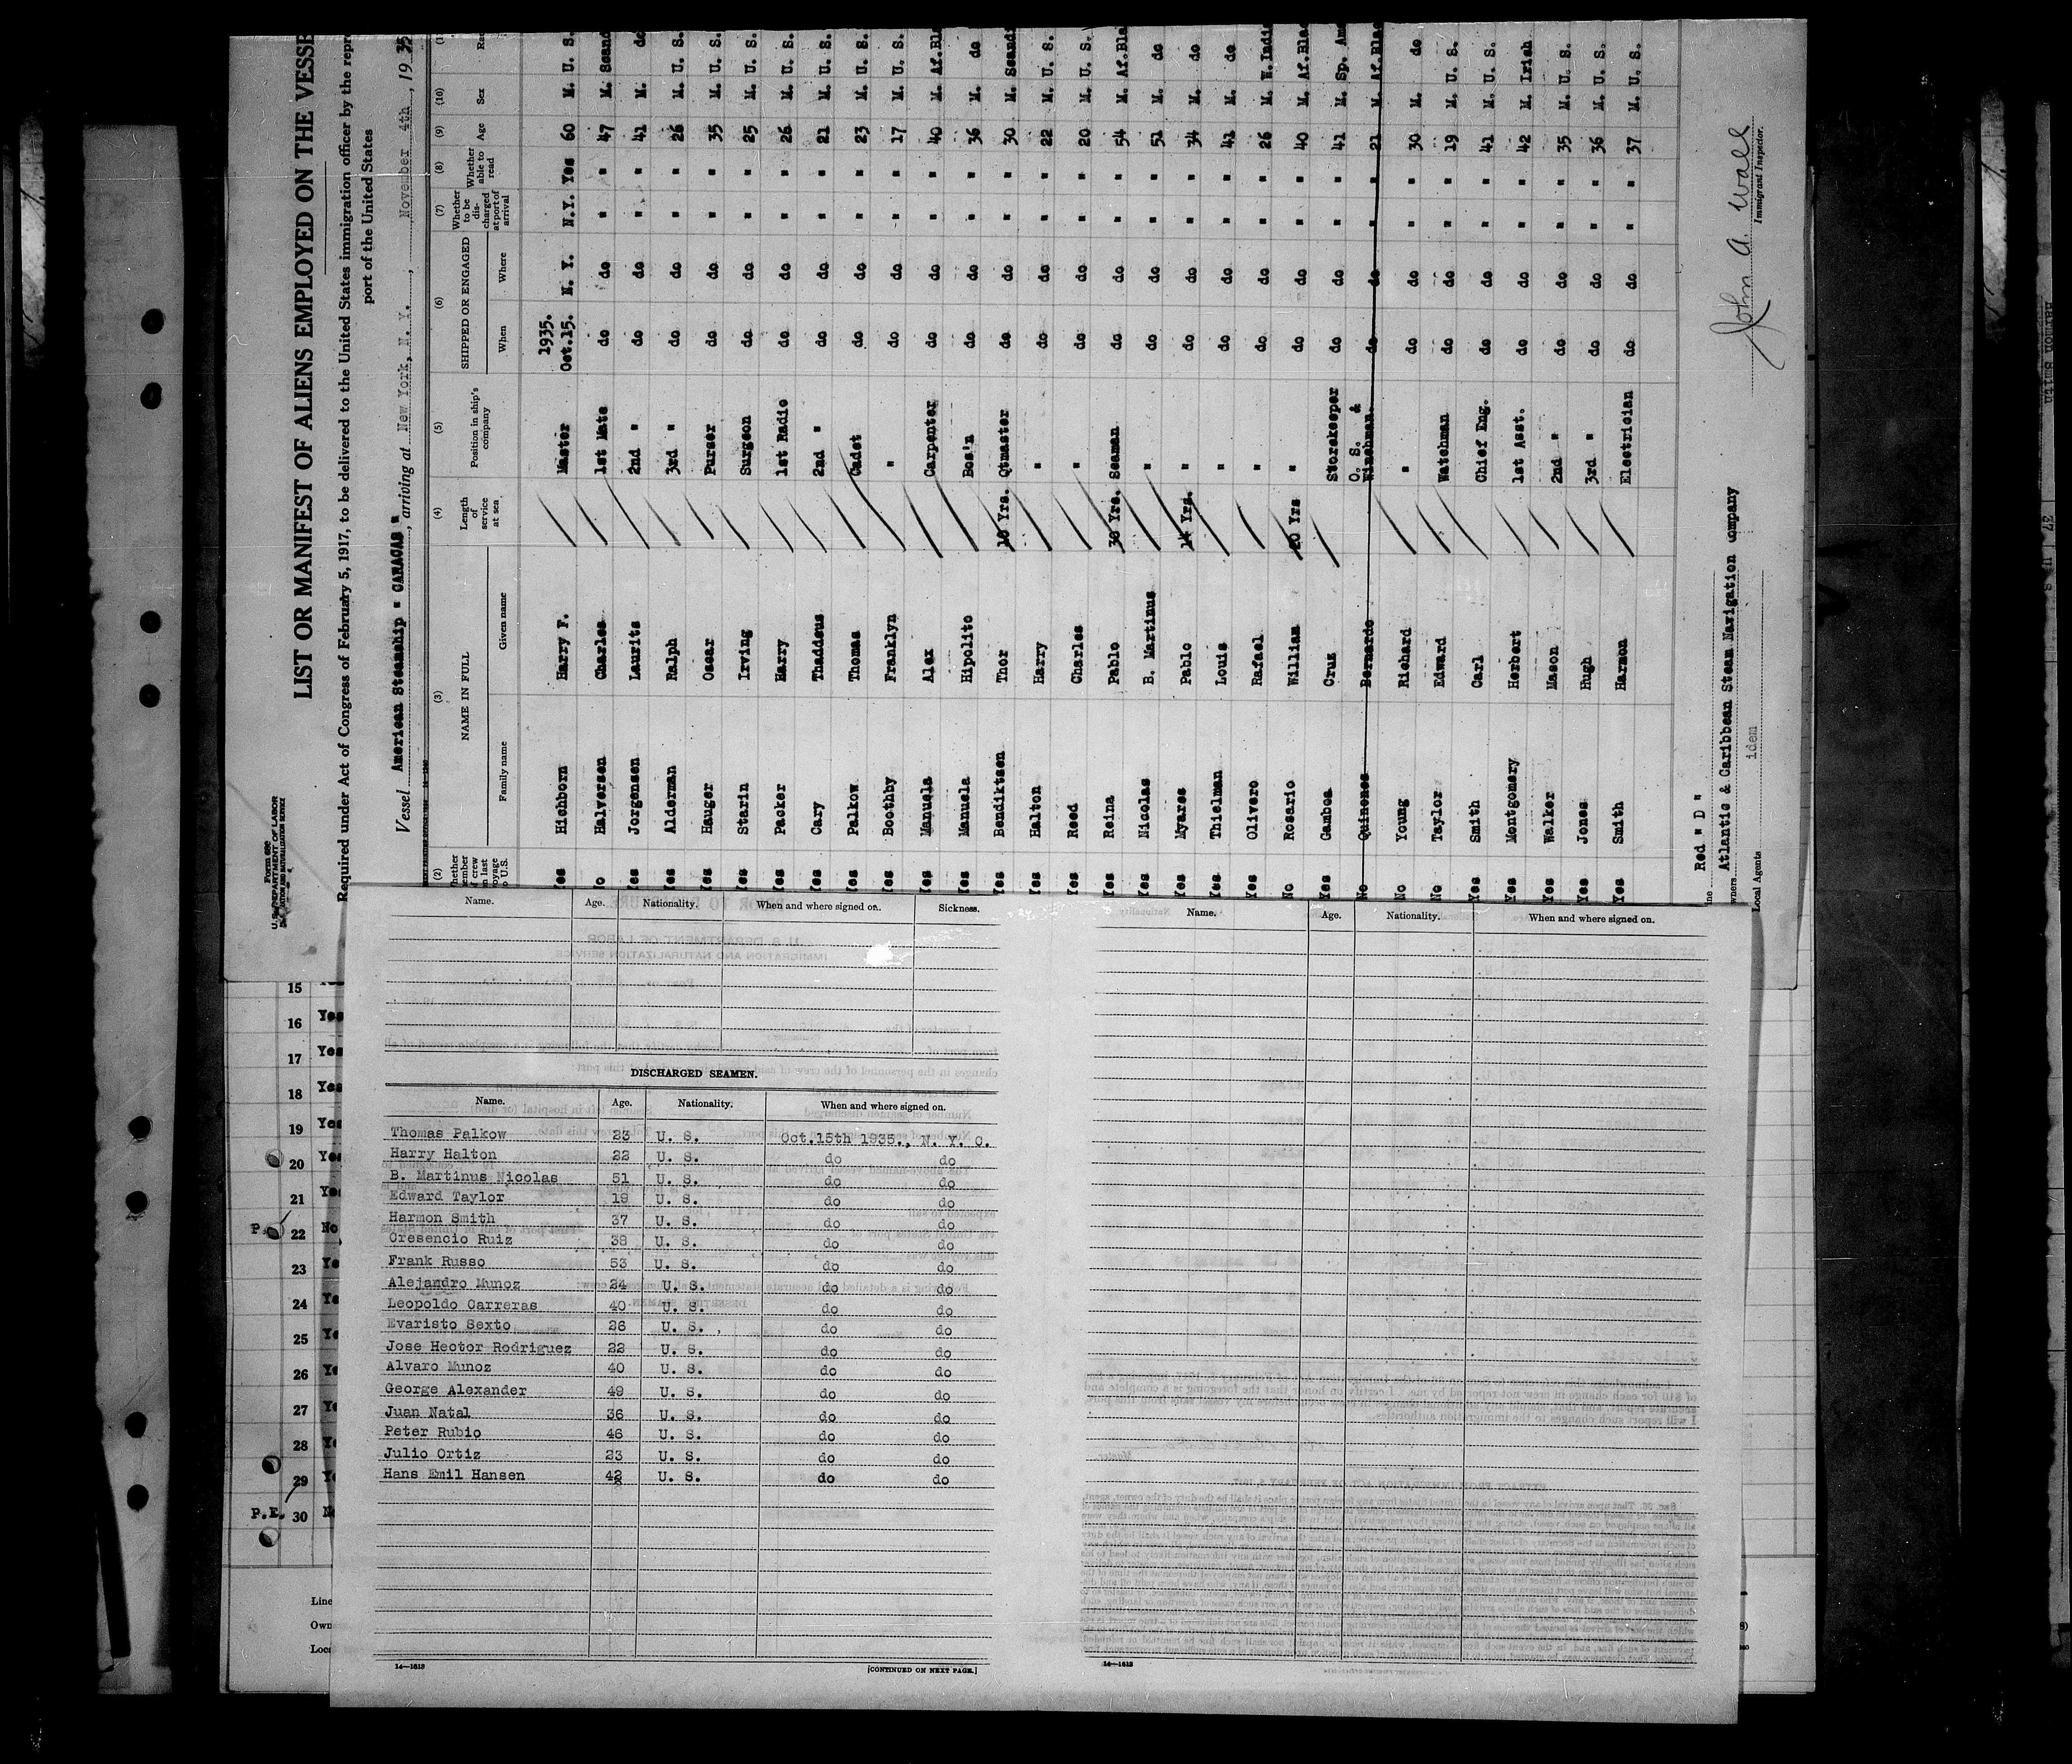 Form 689
U. S. DEPARTMENT OF LABOR
IMMIGRATION AND NATURALIZATION SERVICE
LIST OR MANIFEST OF ALIENS EMPLOYED ON THE VESSE
Required under Act of Congress of February 5, 1917, to be delivered to the United States immigration officer by the repr
port of the United States
Vessel American Steamship " CARACAS ", arriving at New York, N. Y., November 4th, 19 35
(2) (3) (4) (5) (6) (7) (8) (9) (10)
NAME IN FULL Length of service at sea Position in ship's company SHIPPED OR ENGAGED Whether to be discharged at port of arrival Whether able to read Age Sex
Family name Given name When Where
1935.
Yes Hichborn Harry F. Master Oct.15. N. Y. N.Y. Yes 60 M. U. S.
No Halversen Charles 1st Mate do do " " 47 M. Scand
Yes Jorgensen Laurits 2nd " do do " " 41 M. do
Yes Alderman Ralph 3rd " do do " " 26 M. U. S.
Yes Hauger Oscar Purser do do " " 35 M. U. S.
Yes Starin Irving Surgeon do do " " 25 M. U. S.
Yes Packer Harry 1st Radio do do " " 26 M. U. S.
Yes Cary Thaddeus 2nd " do do " " 21 M. U. S.
Yes Palkow Thomas Cadet do do " " 23 M. U. S.
Yes Boothby Franklyn " do do " " 17 M. U. S.
Yes Manuela Alex Carpenter do do " " 40 M. Af.Bl
Yes Manuela Hipolito Bos'n do do " " 36 M. do
Yes Bendiktsen Thor 10 Yrs. Qtmaster do do " " 30 M. Scandi
Yes Halton Harry " do do " " 22 M. U. S.
Yes Reed Charles " do do " " 20 M. U. S.
Yes Reina Pablo 30 Yrs. Seaman do do " " 54 M. Af.Bla
Yes Nicolas B. Martinus " do do " " 51 M. do
Yes Myares Pablo 14 Yrs. " do do " " 34 M. do
Yes Thielman Louis " do do " " 41 M. do
Yes Olivero Rafael " do do " " 26 M. W.Indi
No Rosario William 20 Yrs " do do " " 40 M. Af.Bla
Yes Gamboa Cruz Storekeeper do do " " 41 M. Sp. Ame
O. S. &
No Quinones Bernardo Winchman. do do " " 21 M. Af.Bla
No Young Richard " do do " " 30 M. do
No Taylor Edward Watchman do do " " 19 M. U. S.
Yes Smith Carl Chief Eng. do do " " 41 M. U. S.
Yes Montgomery Herbert 1st Asst. do do " " 42 M. Irish
Yes Walker Mason 2nd " do do " " 35 M. U. S.
Yes Jones Hugh 3rd " do do " " 36 M. U. S.
Yes Smith Harmon Electrician do do " " 37 M. U. S.
Red " D "
Atlantic & Caribbean Steam Navigation ompany
Local Agents idem
John A. Wall
Immigrant Inspector.
Name. Age. Nationality. When and where signed on. Sickness.
DISCHARGED SEAMEN.
Name. Age. Nationality. When and where signed on.
Thomas Palkow 23 U. S. Oct.15th 1935., N. Y. C.
Harry Halton 22 U. S. do do
B. Martinus Nicolas 51 U. S. do do
Edward Taylor 19 U. S. do do
Harmon Smith 37 U. S. do do
Cresencio Ruiz 38 U. S. do do
Frank Russo 53 U. S. do do
Alejandro Munoz 24 U. S. do do
Leopoldo Carreras 40 U. S. do do
Evaristo Sexto 26 U. S. do do
Jose Hector Rodriguez 22 U. S. do do
Alvaro Munoz 40 U. S. do do
George Alexander 49 U. S. do do
Juan Natal 36 U. S. do do
Peter Rubio 46 U. S. do do
Julio Ortiz 23 U. S. do do
Hans Emil Hansen 42 U. S. do do
14—1613 [CONTINUED ON NEXT PAGE.]
Name. Age. Nationality. When and where signed on.
14—1613
15
16 Yes
17 Yes
18 Yes
19 Yes
20 Yes
21 Yes
P. 22 No
23 Ye
24 Ye
25 Ye
26 Ye
27 Ye
28 Ye
29 Ye
P.E. 30 No
Line
Own
Loca